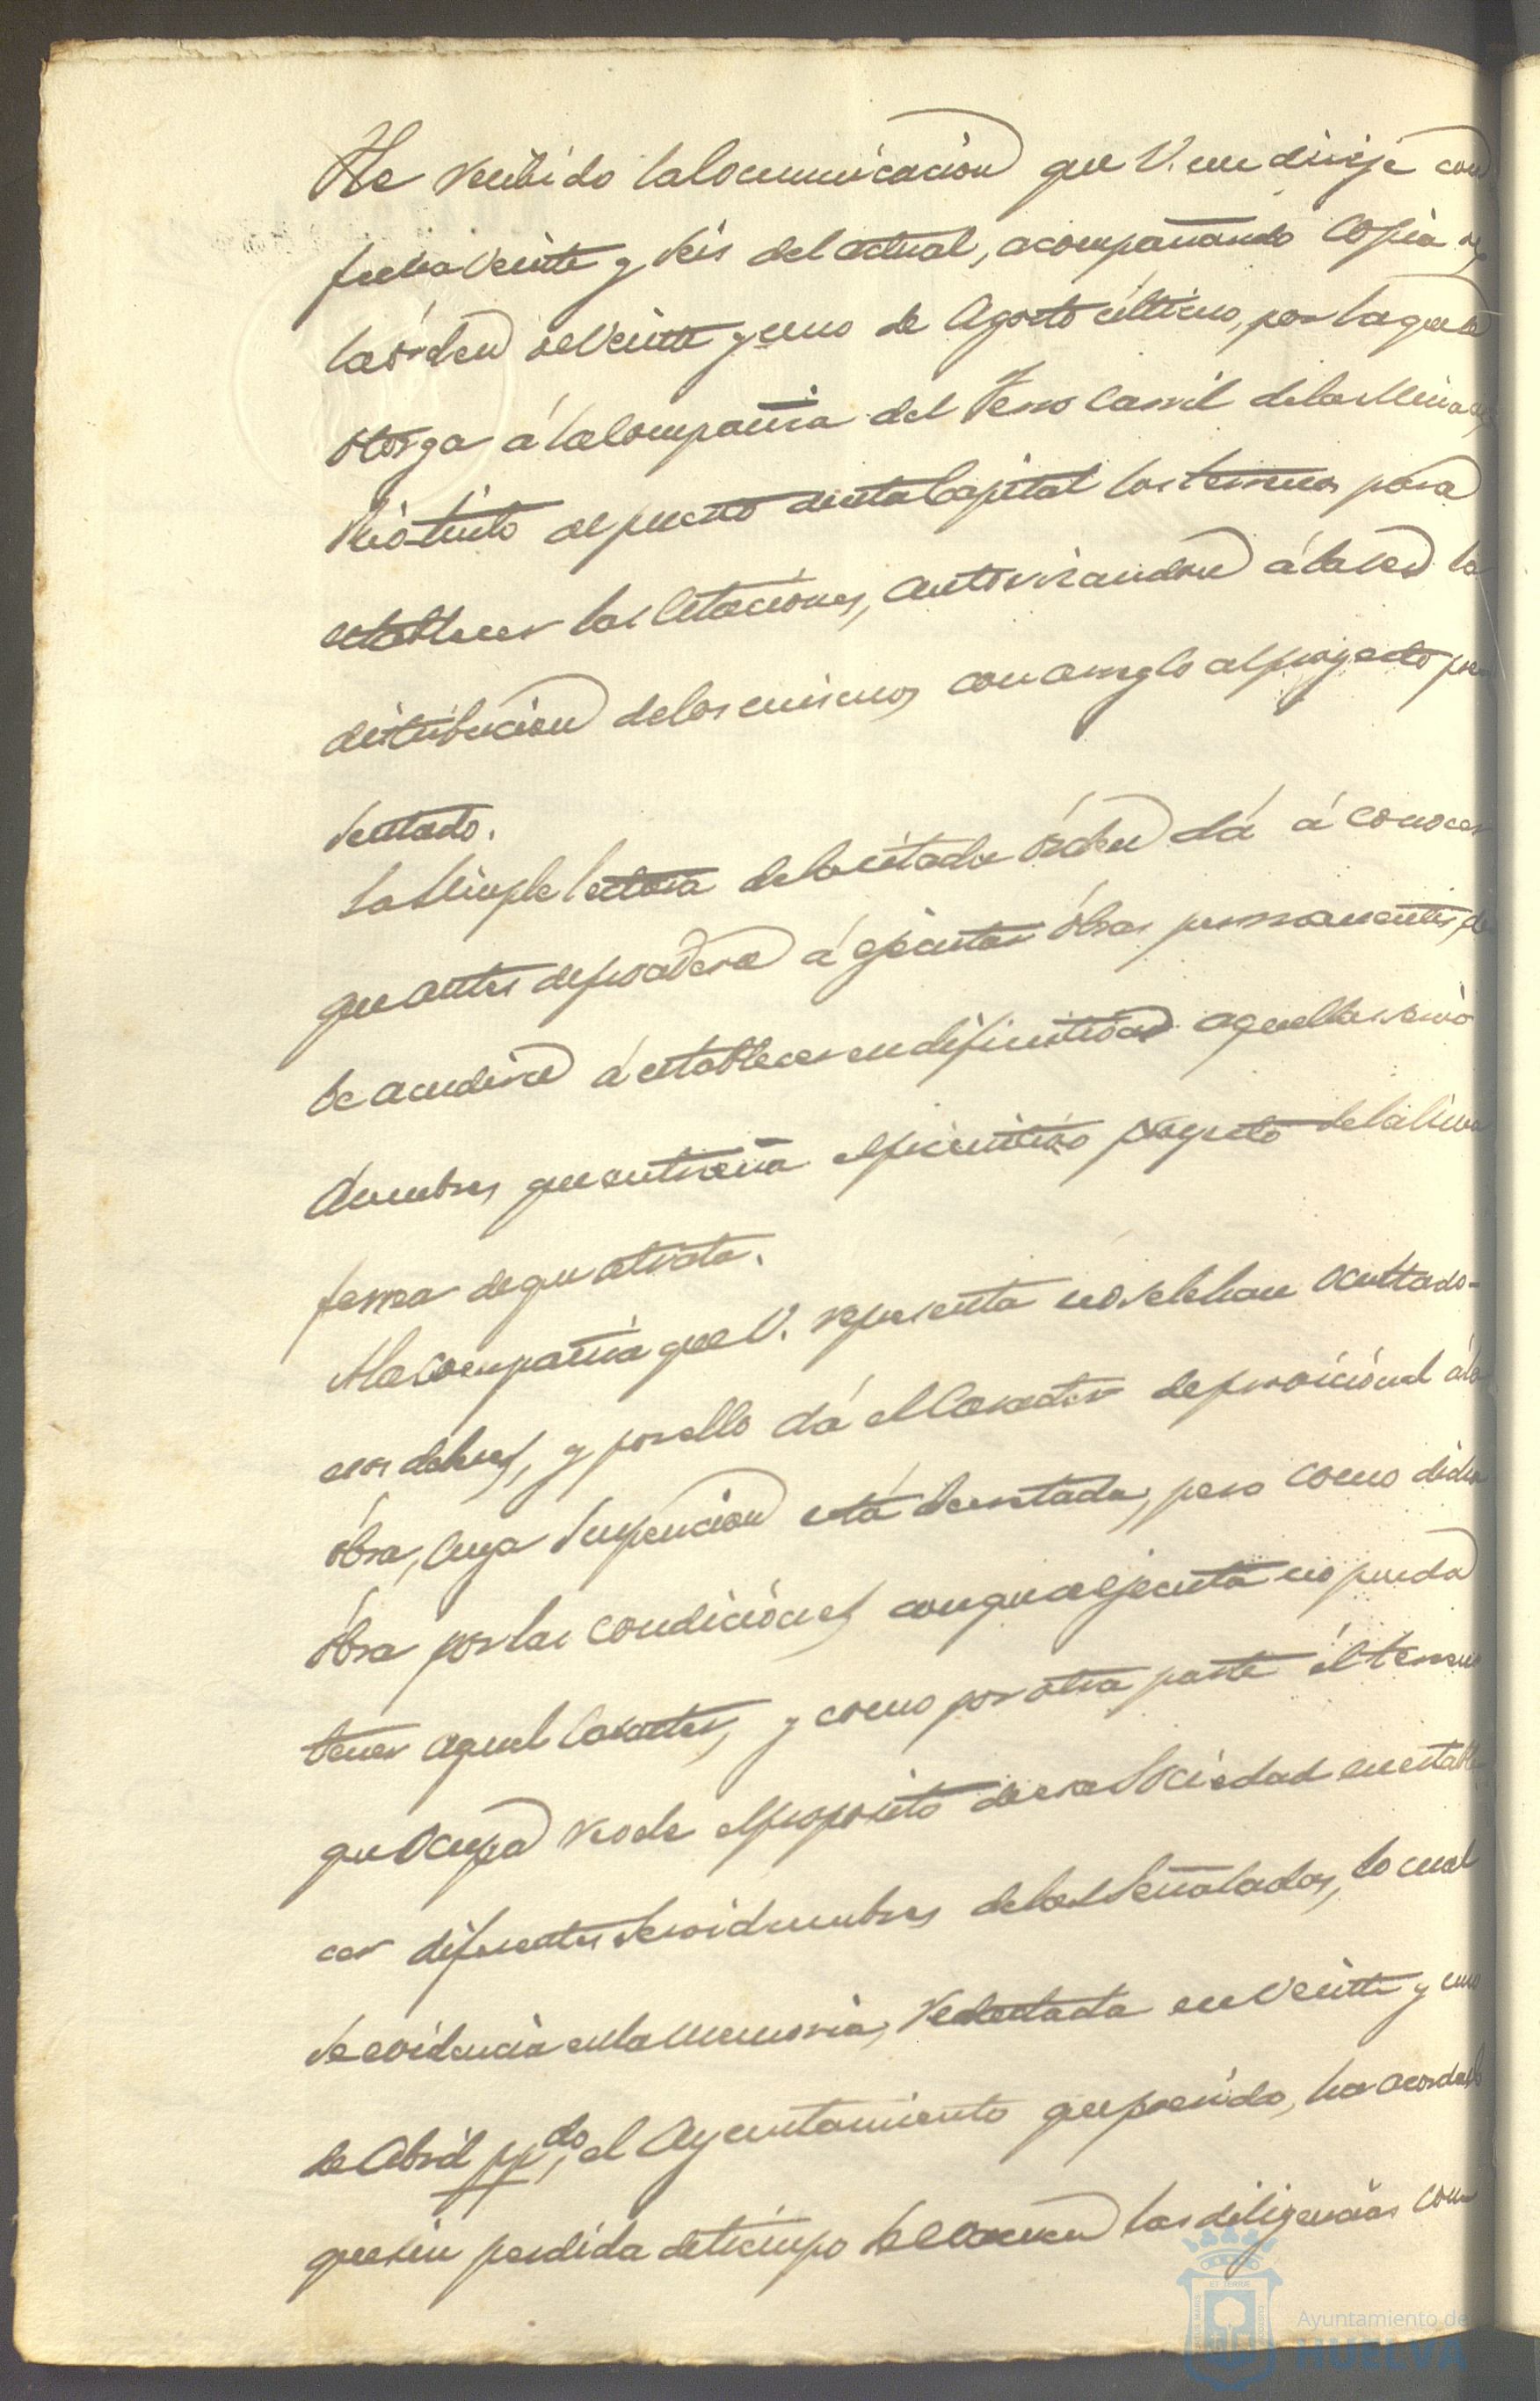 He recibido la Comunicacion que V. me dirije con
fecha veinte y seis del actual, acompañando copia de
la órden de veinte y uno de Agosto último, por la que se
otorga á la Compañia del Ferro Carril de las Minas de
Riotinto al puerto de esta Capital los terrenos para
establecer las Estaciones, autorizandose á la vez la
distribucion de los mismos, con arreglo al proyecto pre
sentado.
La simple lectura de la citada órden dá á conocer
que antes de procederse á ejecutar obras permanentes, de
be acudirse á establecer en difinitiva aquellas servi
dumbres que entraña el primitivo proyecto de la linea
ferrea de que se trata.
A la Compañia que V. representa no se le han ocultado
esos deberes, y por ello dá el Caracter de provicional á la
obra, cuya suspencion está decretada, pero como dicha
obra por las condiciones con que se ejecuta no puede
tener aquel Caracter, y como por otra parte el terreno
que ocupa rebela el proposito de esa Sociedad en estable
cer diferentes servidumbres de las señaladas, lo cual
se evidencia en la memoria, redactada en veinte y uno
de Abril ppdo, el Ayuntamiento que presido, ha acordado
que sin perdida de tiempo se evacuen las diligencias com
Ayuntamiento de
HUELVA